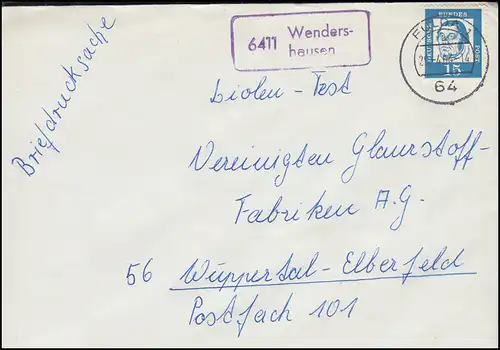 Briefdrucksache
6411 Wenders-
hausen
FULDA
64
DEUTSCHE
BUNDES
POST
15
Diolen - Test
Vereinigten Glanzstoff-
Fabriken A.G.
56 Wuppertal-Elberfeld
Postfach 101